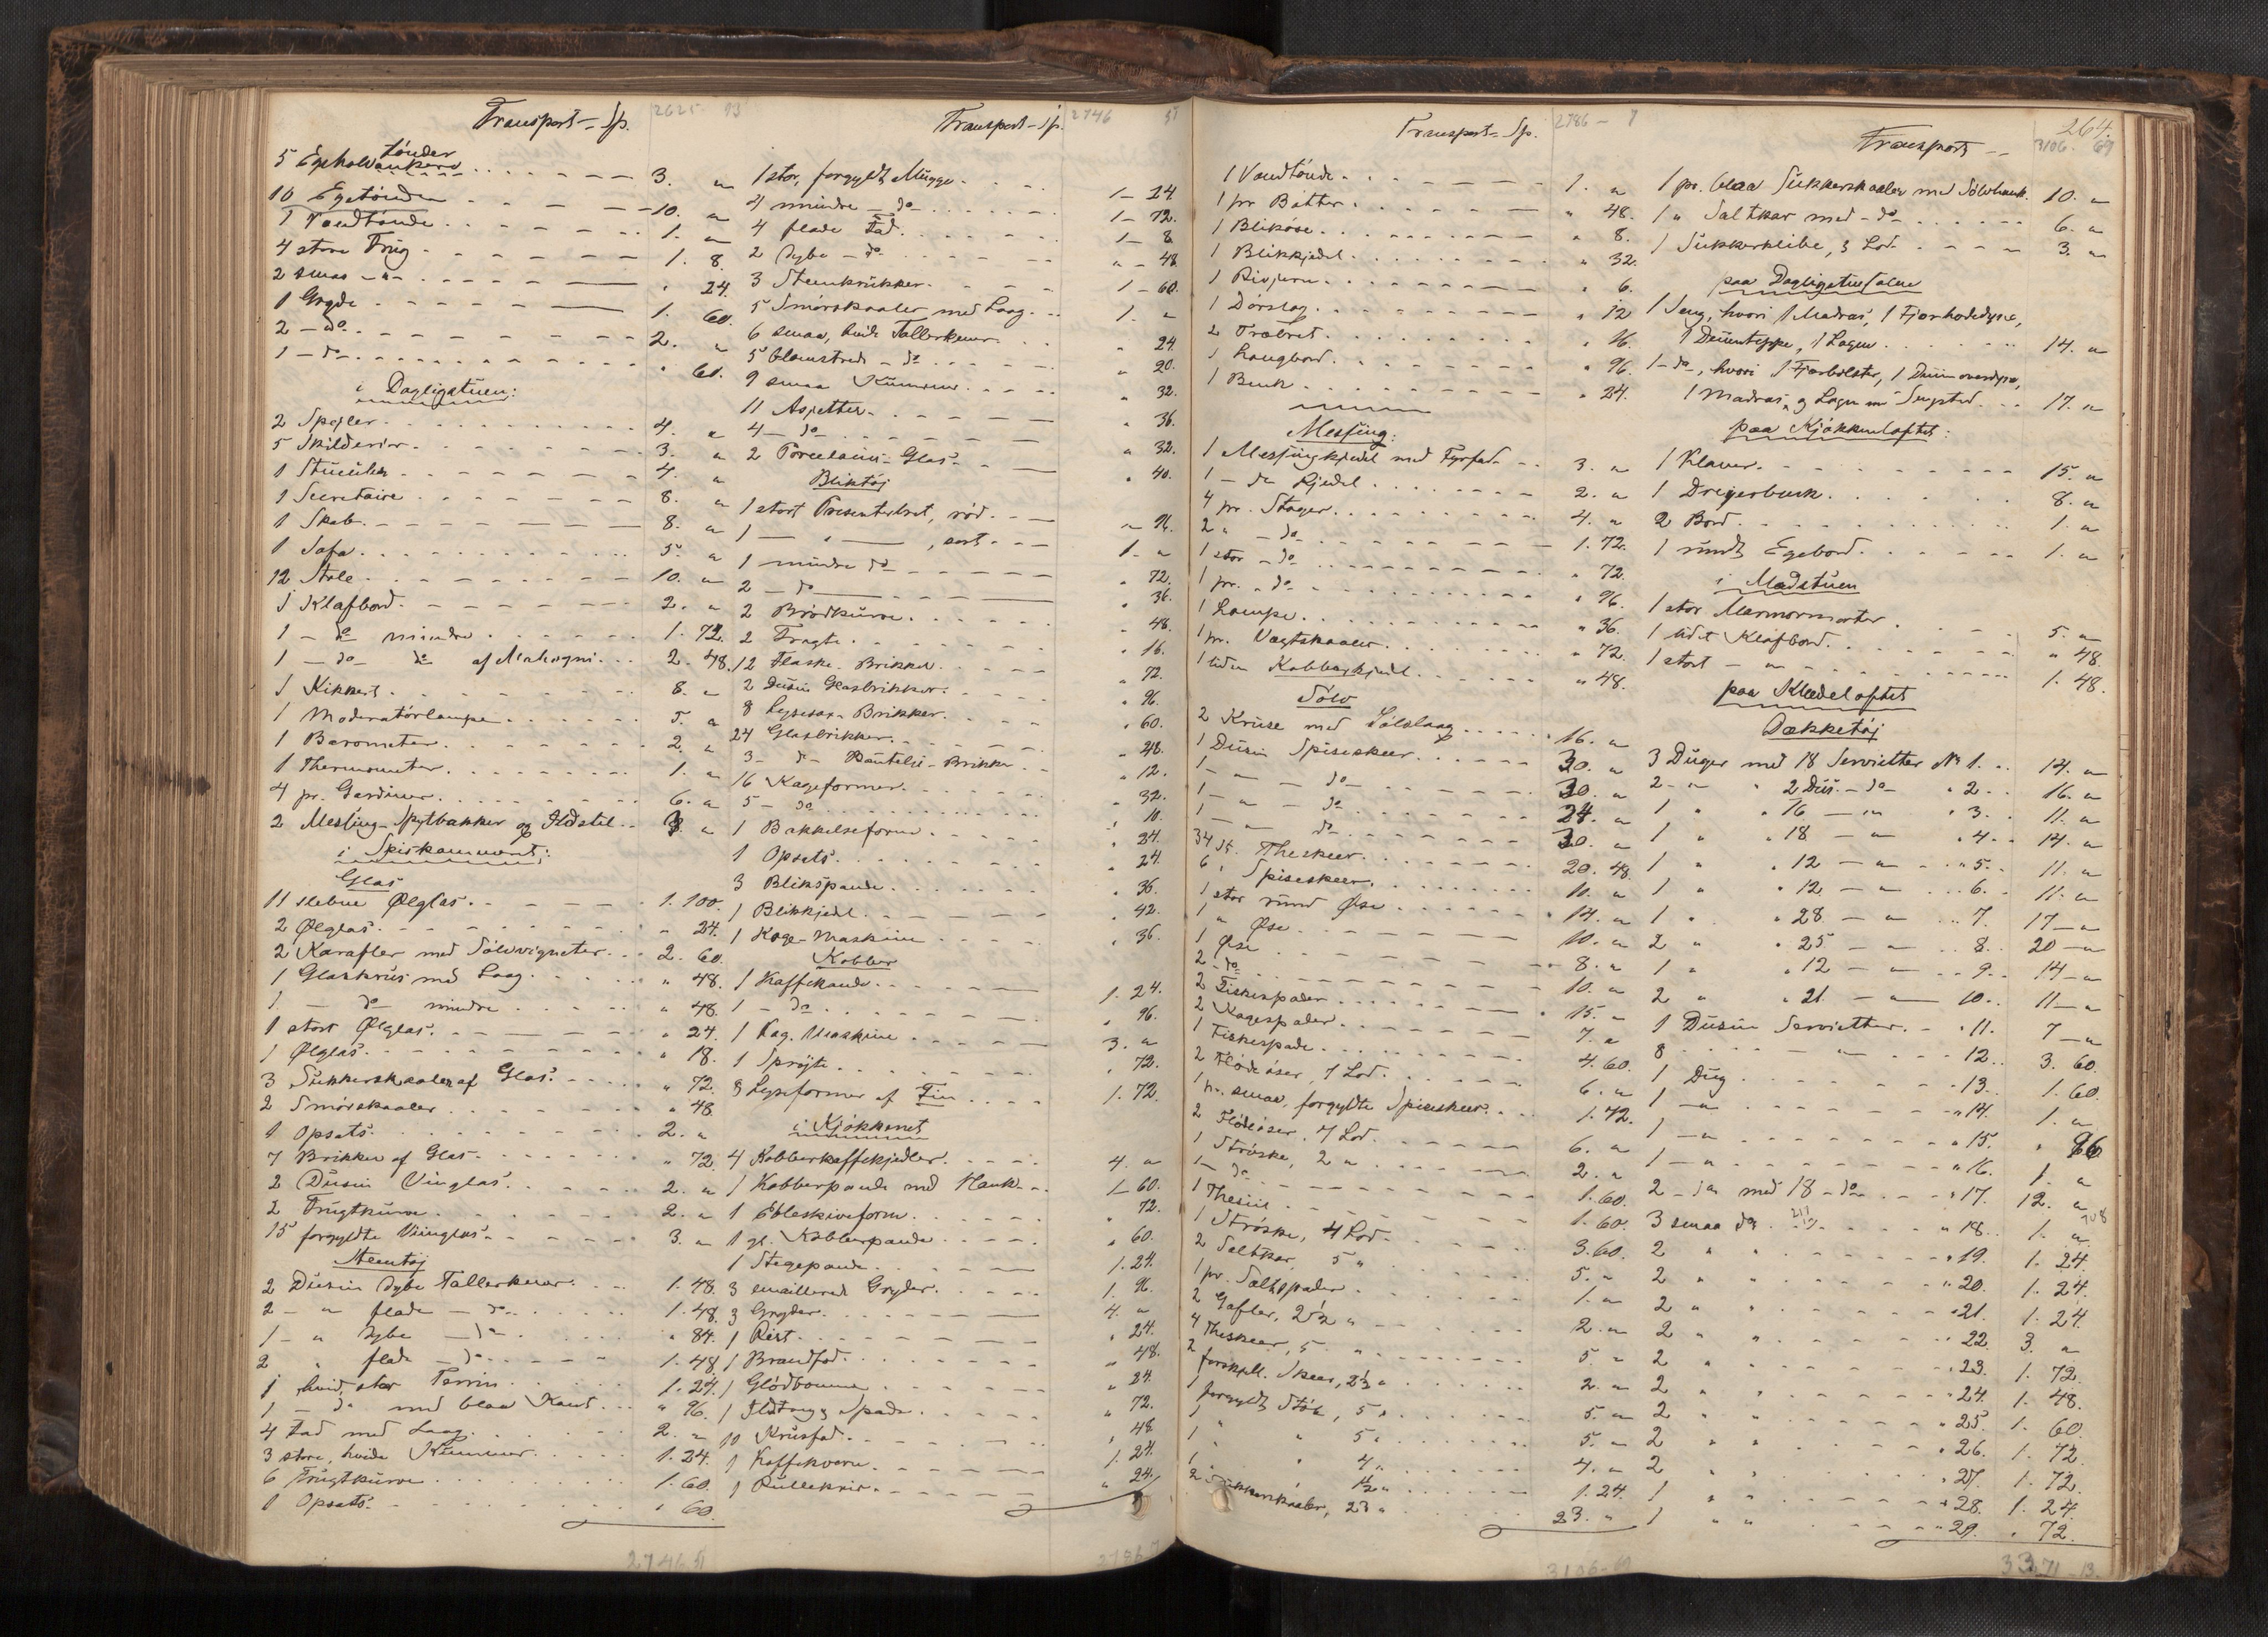 Transport - Sp. 2625. 93
5 Egeholtankere tønder . . . 3. "
10 Egetønder . . . 10. "
1 Vandtønde . . . 1. "
4 store Trug . . . 1. 8.
2 smaa - " - . . . " 24.
1 Gryde . . . 1. 60.
2 - do . . . 2. "
1 - do . . . " 60.
i Dagligstuen:
2 Spejler . . . 4. "
5 Skilderier . . . 3. "
1 Stueuhr . . . 4. "
1 Secretaire . . . 8. "
1 Skab . . . 8. "
1 Sofa . . . 5. "
12 Stole . . . 10. "
1 Klafbord . . . 2. "
1 - do mindre . . . 1. 72.
1 - do - do af Mahogni . . . 2. 48.
1 Kikkert . . . 8. "
1 Moderatørlampe . . . 5. "
1 Barometer . . . 2. "
1 Thermometer . . . 1. "
4 pr. Gardiner . . . 6. "
2 Messing-Spytbakker og Ildstel . . . 3. "
i Spiskammeret:
Glas
11 slebne Ølglas . . . 1. 100.
2 Ølglas . . . " 24.
2 Karafler med Sølvvigneter . . . 2. 60.
1 Glaskrus med Laag . . . " 48.
1 - do mindre . . . " 48.
1 stort Ølglas . . . " 24.
1 Ølglas . . . " 18.
3 Sukkerskaaler af Glas . . . " 72.
2 Smørskaaler . . . " 48
1 Opsats . . . 2. "
7 Brikker af Glas . . . " 72.
2 Dusin Vinglas . . . 2. "
2 Frugtkurve . . . 2. "
15 forgyldte Viinglas . . . 3. "
Steentøj
2 Dusin dybe Tallerkener . . . 1. 48.
2 - " flade - do . . . 1. 48.
1 - " dybe - do . . . " 84.
2 " flade - do . . . 1. 48.
1 hvid, stor Terrin . . . 1. 24.
1 - do med blaa Kant . . . " 96.
4 Fad med Laag . . . 2. "
3 store, hvide Kummer . . . 1. 24.
6 Frugtkurve . . . 1. 60.
1 Opsats . . . " 60.
2746. 51
Transport - Sp. 2746 51
1 stor, forgyldt Mugge . . . 1 - 24
4 mindre - do . . . 1 - 72.
4 flade Fad . . . 1 - 8
2 dybe - do . . . " - 48
3 Steenkrukker . . . 1 - 60.
5 Smørskaaler med Laag . . . 1. "
6 smaa, hvide Tallerkener . . . " 24.
5 blomstrede - do . . . " 20.
9 smaa Kummer . . . " 32.
11 Asjetter . . . " 36.
4 - do . . . " 32.
2 Porcelains-Glas . . . " 40.
Bliktøj
1 stort Presenterbret, rød . . . " 96.
1 - " - , sort . . . 1. "
1 mindre do . . . " 72.
2 - do . . . " 36.
2 Brødkurve . . . " 48.
2 Tragte . . . " 16.
12 Flaske-Brikker . . . " 72.
2 Dusin Glasbrikker . . . " 96.
8 Lysesax-Brikker . . . " 60.
24 Glasbrikker . . . " 48.
3 - do - Bouteille-Brikker . . . " 12.
16 Kageformer . . . " 32.
5 - do . . . " 10.
1 Bakkelseform . . . " 24.
1 Opsats . . . " 24.
3 Blikspande . . . " 36.
1 Blikkjedel . . . " 42.
1 Koge-Maskine . . . " 36.
Kobber
1 Kaffekande . . . 1. 24.
1 - do . . . " 96.
1 Kag. Maskine . . . 3. "
1 Sprøjte . . . " 72.
8 Lyseformer af Tin . . . 1. 72.
i Kjøkkenet
4 Kobberkaffekjedler . . . 4. "
1 Kobberpande med Hank . . . 1 - 60.
1 Ebleskiveform . . . " 72.
1 gl. Kobberpande . . . " 60.
1 Stegepande . . . 1. 24.
3 emaillerede Gryder . . . 1. 96.
3 Gryder . . . 4. "
1 Rist . . . " 24.
1 Brandfod . . . " 48.
1 Glødbomme . . . " 24.
1 Ildtang & Spade . . . " 72.
10 Krusfad . . . " 48.
1 Kaffekværn . . . 1. 24.
1 Rullekniv . . . " 24.
2786 7
Transport - Sp. 2786 - 7
1 Vandtønde . . . 1. "
1 pr Bøtter . . . " 48.
1 Blikøse . . . " 8.
1 Blikkjedel . . . " 32.
1 Rivjern . . . " 6.
1 Dørslag . . . " 12
2 Træbret . . . " 16.
1 Langbord . . . " 96.
1 Bænk . . . " 24.
Messing:
1 Messingkjedel med Fyrfad . . . 3. "
1 - do Kjedel . . . 2. "
4 pr. Stager . . . 4. "
2 " - do . . . 1. 72.
1 stor - do . . . " 72.
1 pr. - do . . . " 96.
1 Lampe . . . " 36.
1 pr. Vægtskaaler . . . " 72.
1 liden Kobberkjedel . . . " 48.
Sølv
2 Kruse med Sølvlaag . . . 16. "
1 Dusin Spiseskeer . . . 30. "
1 - " - do . . . 30. "
1 - " - do . . . 24. "
1 - " do . . . 30. "
34 st. Theskeer . . . 20. 48.
6 " Spiseskeer . . . 11. "
1 stor rund Øse . . . 14. "
1 " Øse . . . 10. "
1 Øse . . . 8. "
2 - do . . . 10. "
2 Fiskespader . . . 15. "
2 Kagespader . . . 7. "
1 Fiskespade . . . 4. 60.
2 Flødeøser, 7 Lod . . . 6. "
1 pr. smaa, forgyldte Spiseskeer . . . 1. 72.
2 Flødeøser, 7 Lod . . . 6. "
1 Strøske, 2 " . . . 2. "
1 - do . . . 1. 60.
1 Thesiil . . . 1. 60.
1 Strøske, 4 Lod . . . 3. 60.
2 Saltkar, 5 " . . . 5. "
1 pr. Saltspader . . . 1. "
2 Gafler, 2½ " . . . 2. "
4 Theskeer, 5 " . . . 5. "
2 forskjell. Skeer, 2½ " . . . 2. "
1 forgyldt Støb, 5 " . . . 5. "
1 " " 5 " . . . 5. "
1 " " 4 " . . . 4. "
1 " " 1½ " . . . 1. 24.
2 Sukkerskaaler, 23 " . . . 23. "
3106 - 69
264.
Transport - - 3106. 69
1 pr. blaa Sukkerskaaler med Sølvhank. 10. "
1 " Saltkar med - do . . . 6. "
1 Sukkerklibe, 3 Lod . . . 3. "
paa Dagligstuesalen
1 Seng, hvori 1 Madras, 1 Fjærhodedyne,
1 Duunteppe, 1 Lagen . . . 14. "
1 - do, hvori 1 Fjærbolster, 1 Duunoverdyne,
1 Madras, & Lagen m Sengsted . . . 17. "
paa Kjøkkenloftet:
1 Klaver . . . 15. "
1 Drejerbænk . . . 8. "
2 Bord . . . 1. "
1 rundt Egebord . . . 1. "
i Madstuen
1 stor Marmormorter . . . 5. "
1 lidet Klafbord . . . " 48.
1 stort - " - . . . 1. 48.
paa Klædeloftet
Dækketøj
3 Duger med 18 Servietter No 1. . . 14. "
2 - " " 2 Dus. - do " 2 . . 16. "
1 " " 16 - " " 3. . 11. "
1 " " 18 - " " 4 . . 14. "
1 " " 12 - " " 5. . 11. "
1 " " 12 - " . . 6. . 11. "
1 " " 28 - " . . 7. 17 - "
2 " " 25 - " . . 8. . 20 - "
1 " " 12 - " . . 9. . 14 - "
2 " " 21 - " 10. . 11 - "
1 Dusin Servietter . . . " 11. 7 - "
8 . . - " . . . 12. . 3. 60.
1 Dug . . . 13. . 1. 60.
1 - " . . . " 14. 1. "
1 - " . . . " 15. " 96
1 - " . . . " 16. 1. "
2 - do med 18 - do . . . " 17. 12. "
3 smaa do . . . " 18. . 1. "
2 " " . . . " 19. 1. 24.
2 " " . . . " 20. 1. 24.
2 " " . . . " 21. 1. 24.
2 " " . . . " 22. 3. "
2 " " . . . " 23. 1. 72.
2 " " . . . " 24. 1. 48.
2 " " . . . " 25. 1. 60.
2 " " . . . " 26. 1. 72.
2 " " . . . " 27. 1. 72.
1 " " . . . " 28. 1. 24.
1 " " . . . " 29. " 72.
3371 - 13.